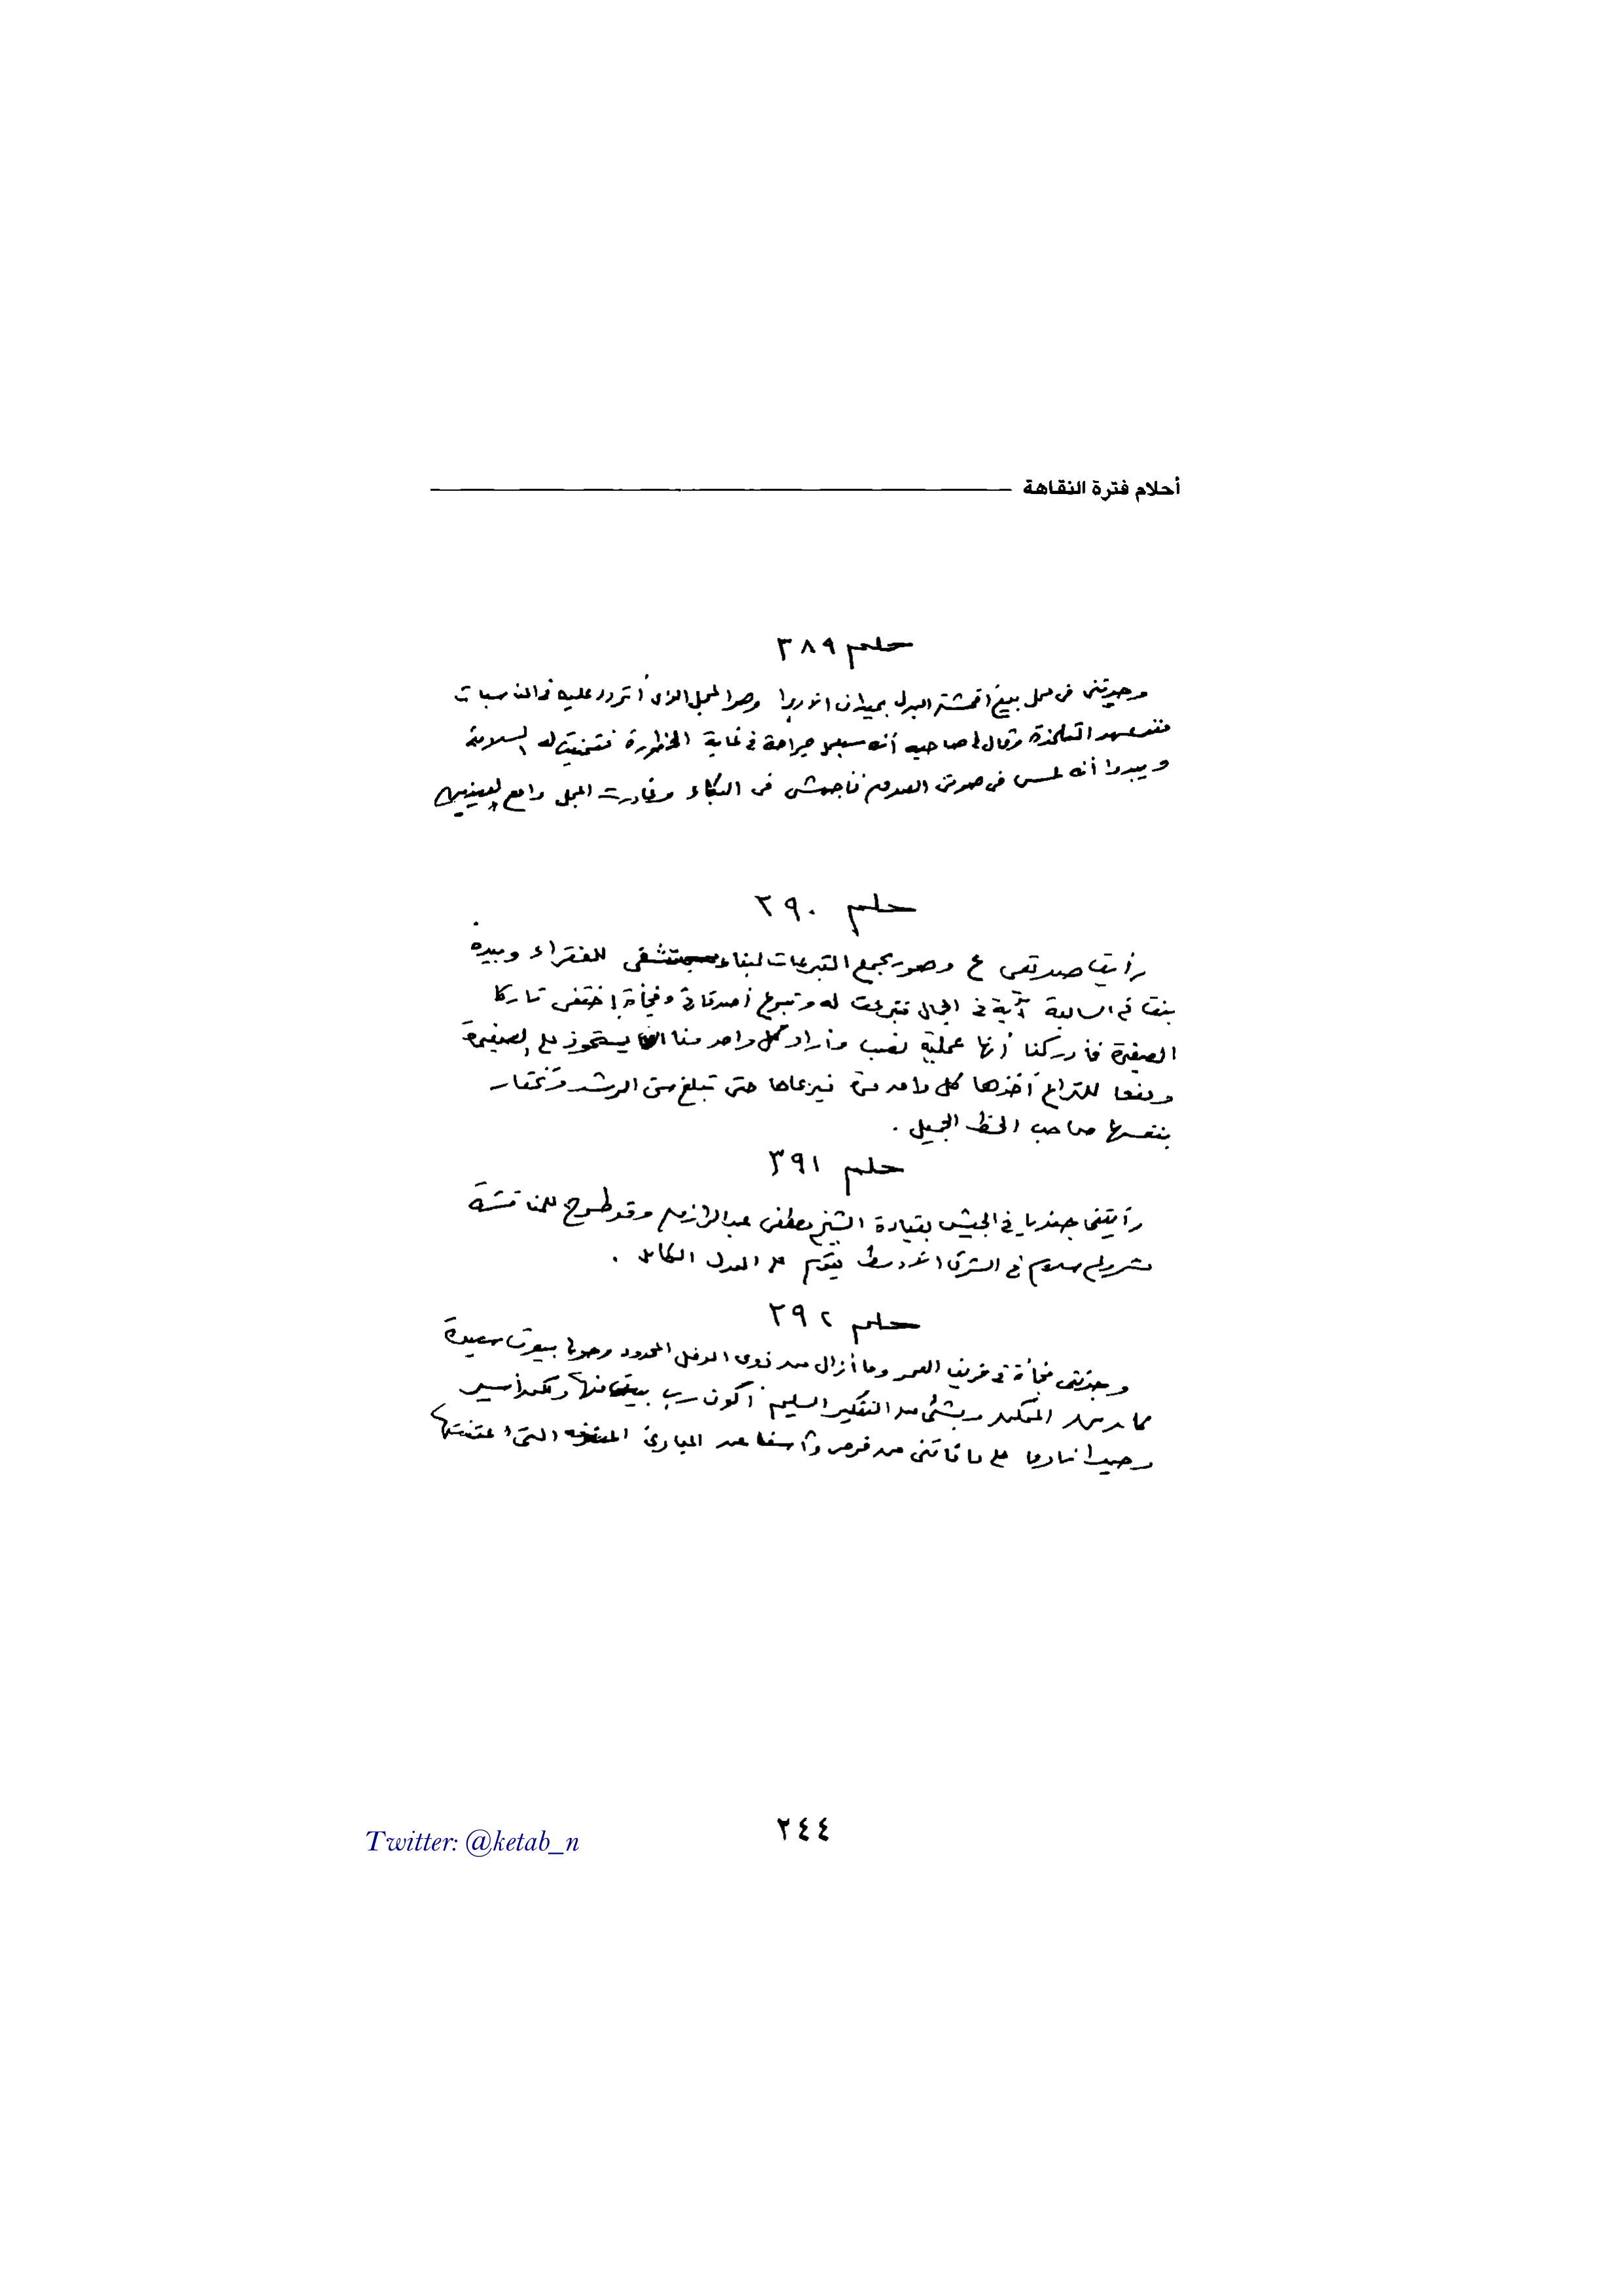 أحلام فترة النقاهة
حلم ٣٨٩
وجدتنى فى محل بيع أقمشة البدل بميدان الأوبرا وهو المحل الذى أتردد عليه فى المناسبات
منذ عهد التلمذة وقال لى صاحبه أنه سيعمل جراحة فى غاية الخطورة فتمنيت له السلامة
ويبدو أنه لمس فى صوتى الصدق فأجهش فى البكاء وغادرت المحل دامع العينين
حلم ٣٩٠
رأيت صديقى ع وهو يجمع التبرعات لبناء مستشفى للفقراء وبيده
بنت فى السابعة آية فى الجمال فتبرعت له وتبرع أصدقائى وفجأة إختفى تاركا
الصغيرة فأدركنا أنها عملية نصب وأراد كل واحد منا أن يستحوز على الصغيرة
ومنعا للنزاع أخذها كل واحد منا فيرعاها حتى تبلغ سن الرشد وتختار
بنفسها صاحب الحظ الجميل .
حلم ٣٩١
رأيتنى جنديا فى الجيش بقيادة الشيخ مصطفى عبد الرازق وقد طرح للمناقشة
مشروع سلام فى الشرق الأوسط يقوم على العدل الكامل .
حلم ٣٩٢
وجدتنى فجأة فى خريف العمر وما أزال من ذوى الدخل المحدود وحولى بيوت سعيدة
كان من الممكن وبشئ من التفكير السليم أكون رب بيت منها ولكن أسير
وحيدا نادما على ما فاتنى من فرص وآسفا عن المبادئ التى اعتنقتها
٢٤٤
Twitter: @ketab_n